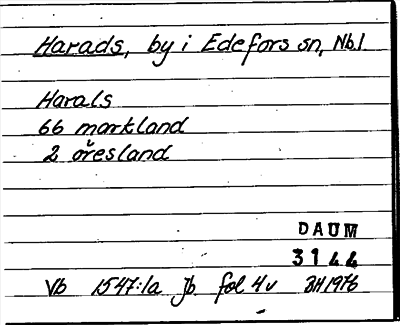 Harads, by i Edefors sn, Nb.l.
Harals
66 markland
2 öresland
DAUM
3144
Vb 1547:1a Jb fol 4v BH 1976